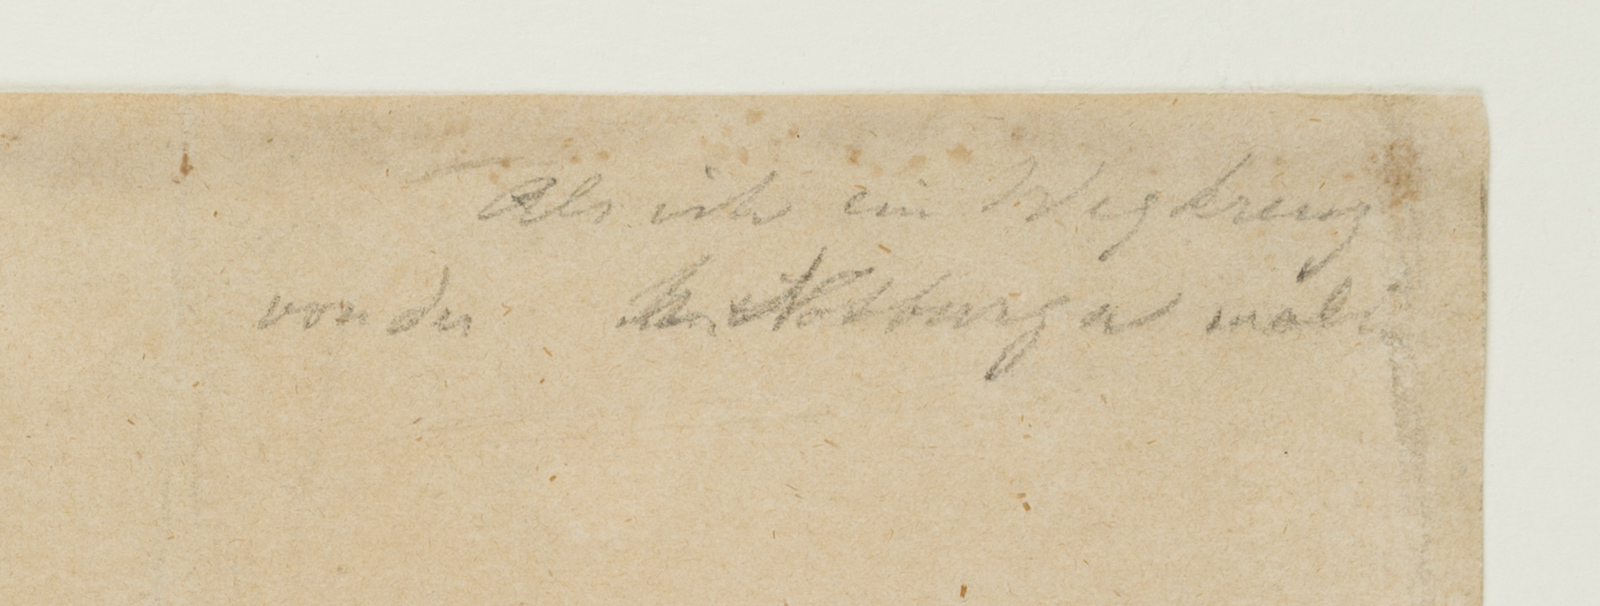 Als ich ein Wegkreuz
von der Notburga male